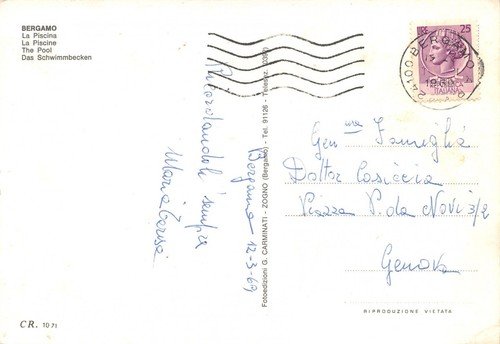 BERGAMO
La Piscina
La Piscine
The Pool
Das Schwimmbecken
LIRE 25
24100 BERGAMO
ITALIANA
Ricordandoli sempre
Maria Teresa
Bergamo 12-3-69
Fotoedizioni G. CARMINATI - ZOGNO (Bergamo) - Tel. 91126 - Teleselez.
Gen.ma Famiglia
Dottor Casiccia
Piazza P. da Novi 3/2
Genova
RIPRODUZIONE VIETATA
CR. 10-71